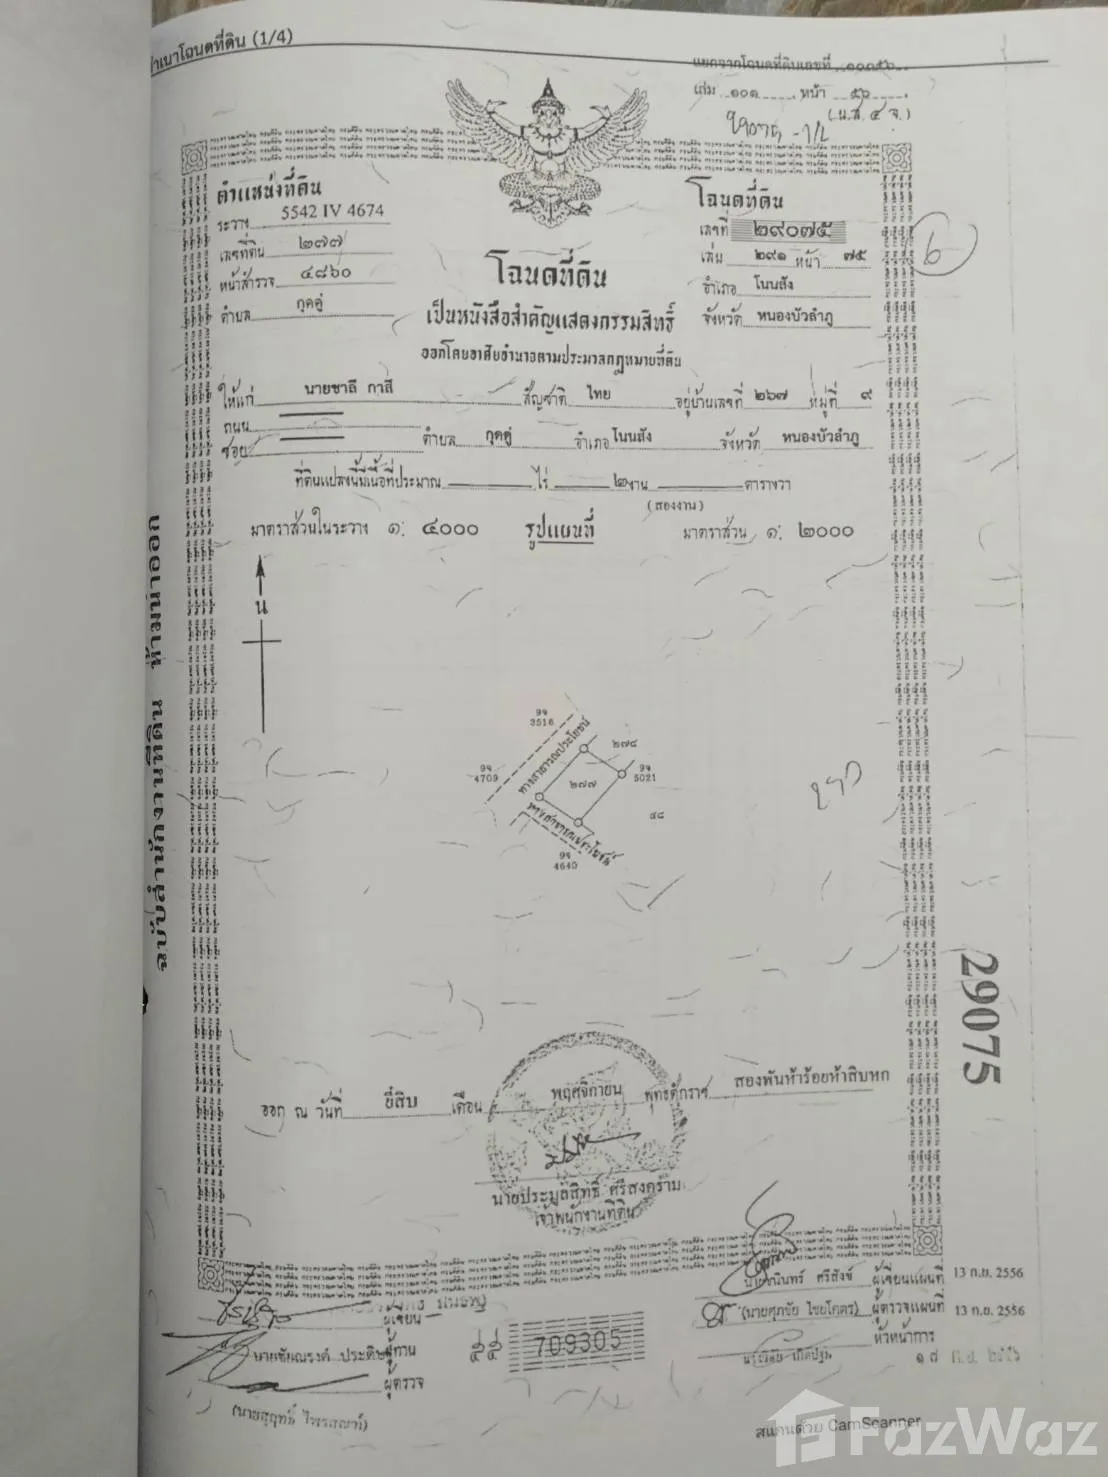 สำเนาโฉนดที่ดิน (1/4)
แยกจากโฉนดที่ดินเลขที่ ๑๐๑๕๖
เล่ม ๑๐๑ หน้า ๕๖
(น.ส. ๔ จ.)
ตำแหน่งที่ดิน
ระวาง 5542 IV 4674
เลขที่ดิน ๒๗๗
หน้าสำรวจ ๔๘๖๐
ตำบล กุดดู่
โฉนดที่ดิน
เลขที่ ๒๙๐๗๕
เล่ม ๒๙๑ หน้า ๗๕
อำเภอ โนนสัง
จังหวัด หนองบัวลำภู
โฉนดที่ดิน
เป็นหนังสือสำคัญแสดงกรรมสิทธิ์
ออกโดยอาศัยอำนาจตามประมวลกฎหมายที่ดิน
ให้แก่ นายชาลี กาสี สัญชาติ ไทย อยู่บ้านเลขที่ ๒๖๗ หมู่ที่ ๙
ถนน
ซอย ตำบล กุดดู่ อำเภอ โนนสัง จังหวัด หนองบัวลำภู
ที่ดินแปลงนี้มีเนื้อที่ประมาณ ไร่ ๒ งาน ตารางวา
(สองงาน)
มาตราส่วนในระวาง ๑: ๔๐๐๐ รูปแผนที่ มาตราส่วน ๑: ๒๐๐๐
น
9จ
3516
ทางสาธารณประโยชน์
๒๗๘
9จ
4709
๒๗๗
9จ
5021
๔๘
ทางสาธารณประโยชน์
9จ
4640
ฉบับสำนักงานที่ดิน ห้ามนำออก
29075
ออก ณ วันที่ ยี่สิบ เดือน พฤศจิกายน พุทธศักราช สองพันห้าร้อยห้าสิบหก
นายประมูลสิทธิ์ ศรีสงคราม
เจ้าพนักงานที่ดิน
ศรีสังข์ ผู้เขียนแผนที่ 13 ก.ย. 2556
(นายศุภชัย ไชยโคตร) ผู้ตรวจแผนที่ 13 ก.ย. 2556
หัวหน้าการ
ผู้เขียน
นายชัยณรงค์ ประดิษฐ ผู้ทาน
ผู้ตรวจ
๕๕ 709305
สแกนด้วย CamScanner
FazWaz